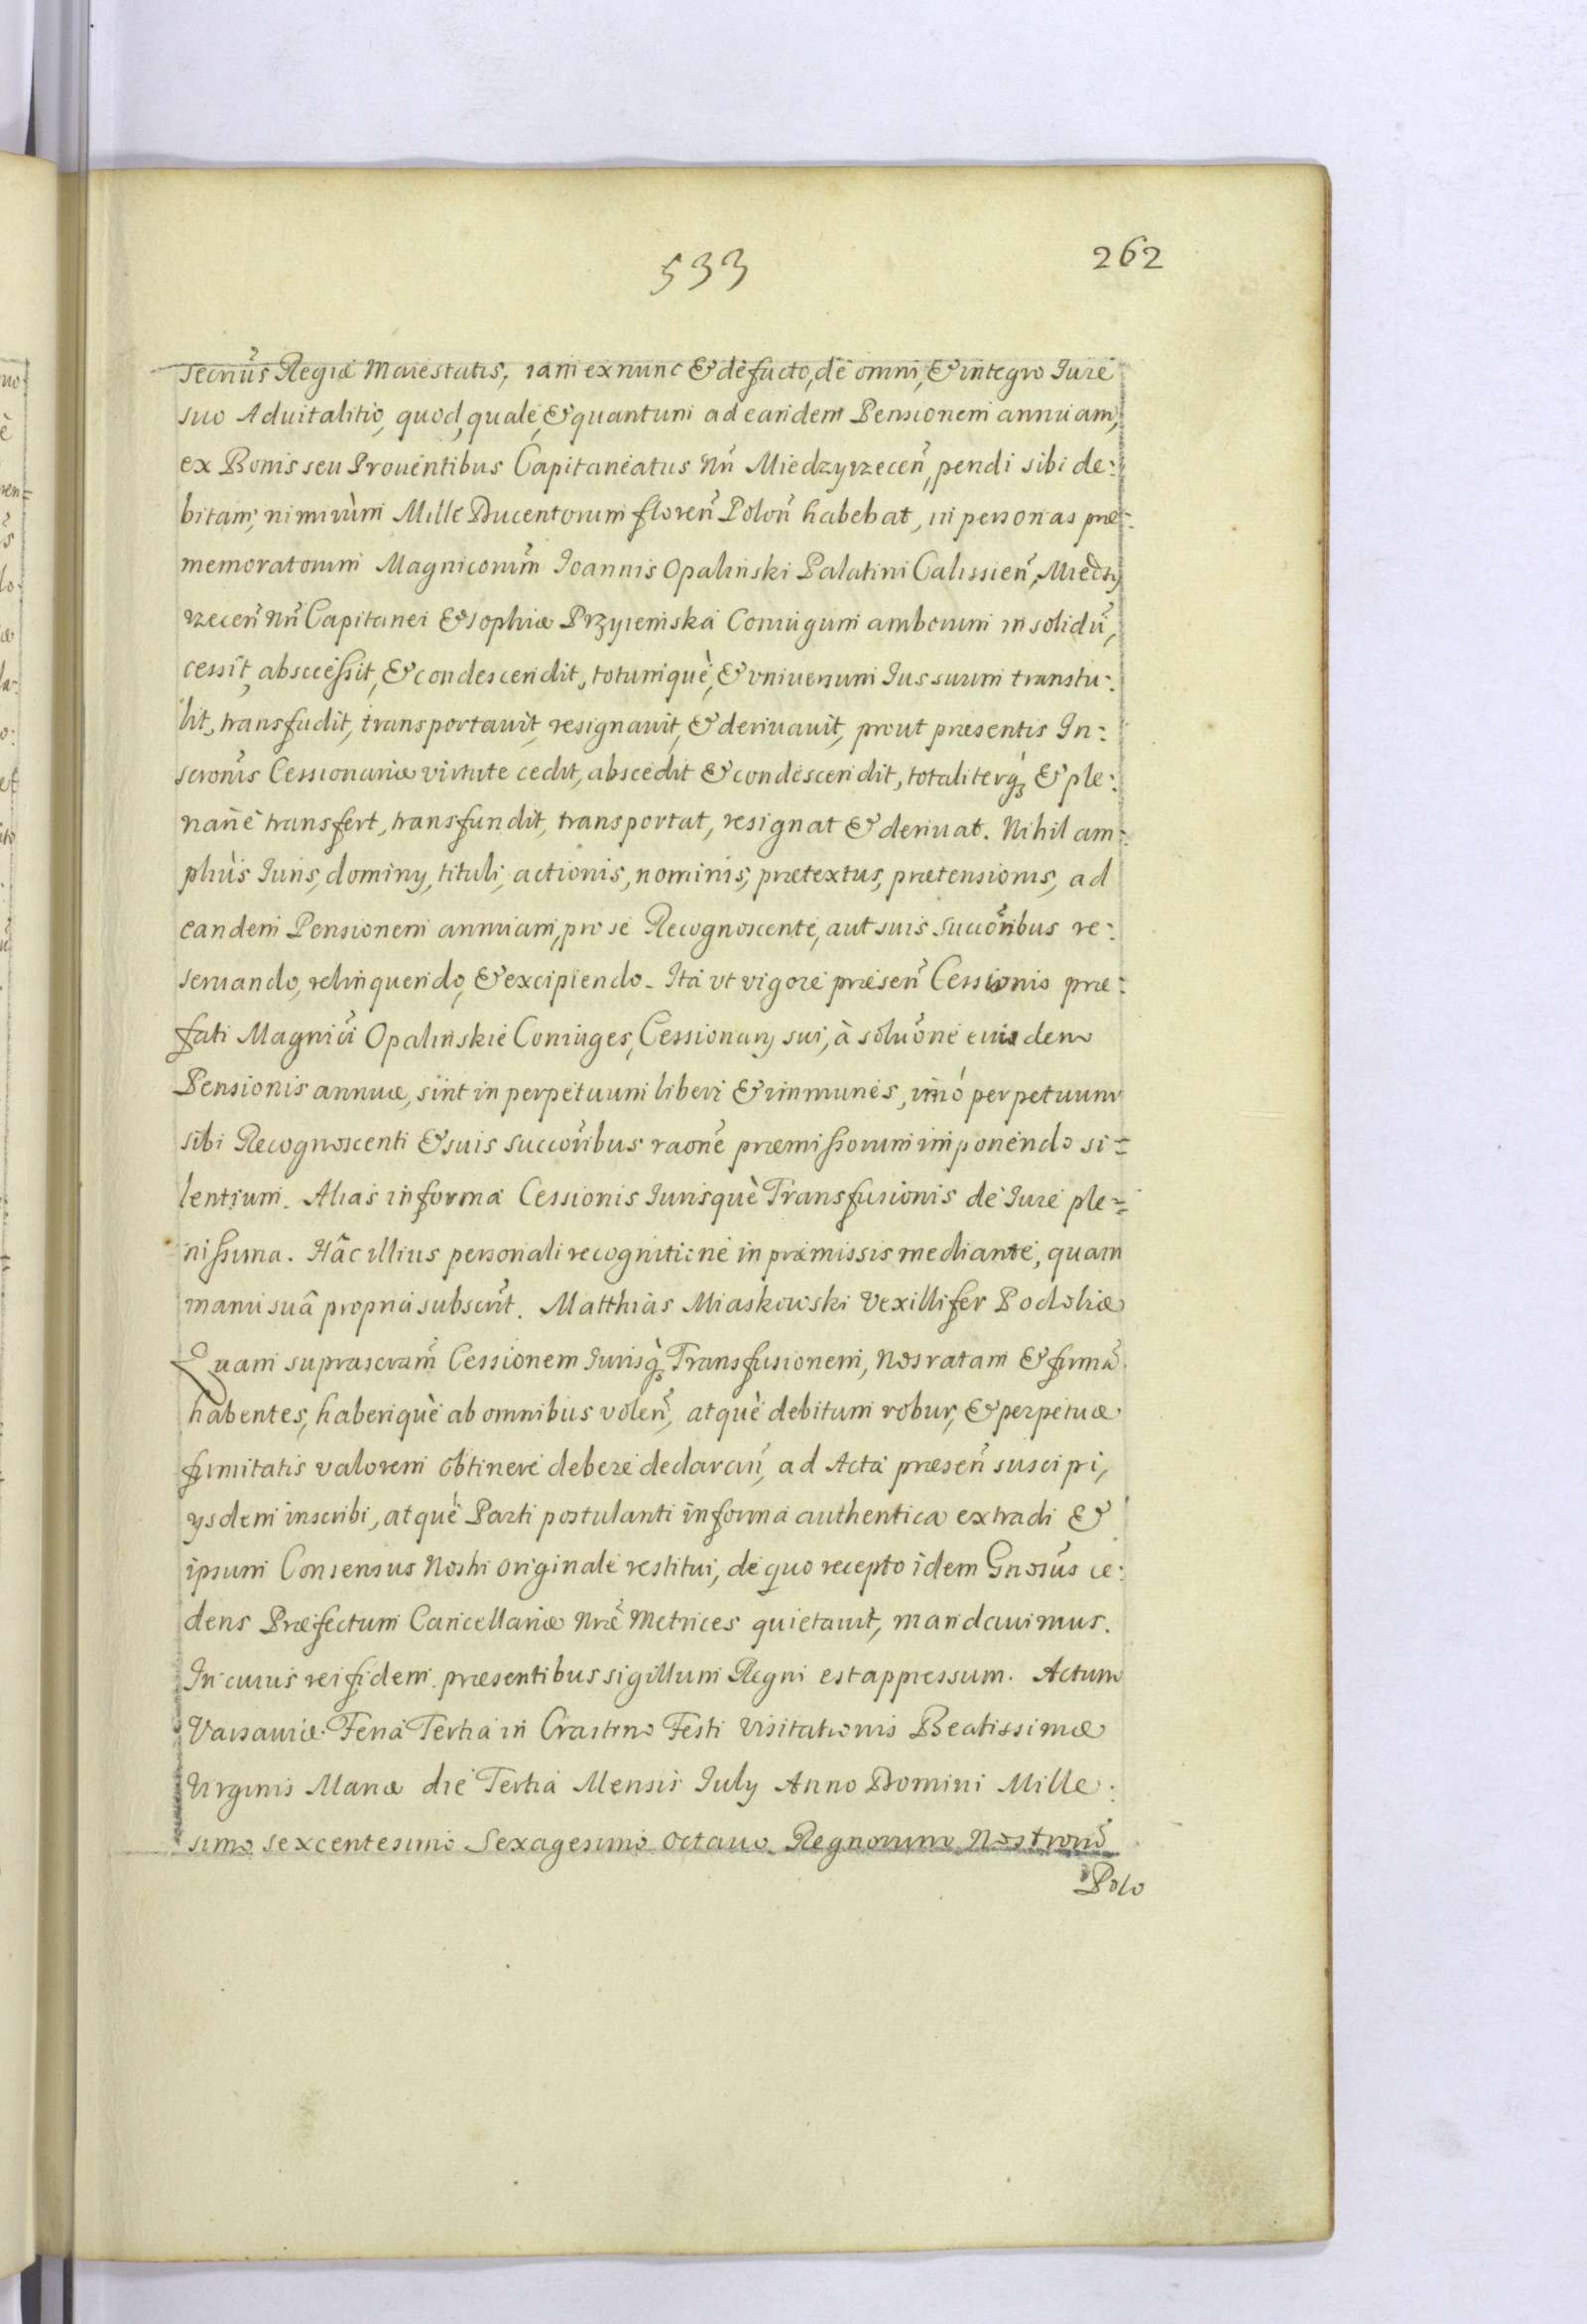 533
262
Secrius Regiæ Maiestatis, iam exnunc & defacto, de omni, & integro Iure
suo Aduitalitio, quod, quale, & quantum ad eandem Pensionem annuam,
ex Bonis seu Prouentibus Capitaneatus Nri Miedzyrzecen̄, pendi sibi de:
bitam, nimirùm Mille Ducentorum floren̄ Polon̄ habebat, in personas præ:
memoratorum Magnicorum̄ Ioannis Opalinski Palatini Calissien̄, Miedzy
rzecen̄ Nri Capitanei & Sophiæ Przyiemska Coniugum amborum in solidū,
cessit, abscessit, & condescendit, totumquè, & vniuersum Ius suum transtu:
lit, transfudit, transportauit, resignauit, & deriuauit, prout præsentis In:
scronis̄ Cessionariæ virtute cedit, abscedit & condescendit, totaliterq́₃ & ple:
narie transfert, transfundit, transportat, resignat & deriuat. Nihil am:
pliùs Iuris, dominy, tituli, actionis, nominis, prætextus, prætensionis, ad
eandem Pensionem annuam, pro se Recognoscente, aut suis Succoribus̄ re:
seruando, relinquendo, & excipiendo. Ita vt vigore præsen̄ Cessionis præ:
fati Magnicī Opalinskie Coniuges, Cessionary sui, à soluonē eiusdem
Pensionis annuæ, sint in perpetuum liberi & immunes, imò perpetuum
sibi Recognoscenti & suis succoribus̄ raonē præmissorum imponendo si=
lentium. Alias in forma Cessionis Iurisquè Transfusionis de Iure ple=
nissima. Hâc illius personali recognitione in præmissis mediante, quam
manu suâ propria subscrit̄. Matthias Miaskowski Vexillifer Podoliæ
Quam suprascram̄ Cessionem Iurisq̀₃ Transfusionem, Nos ratam & firmā
habentes, haberiquè ab omnibus volen̄, atquè debitum robur, & perpetuæ
firmitatis valorem obtinere debere declaran̄, ad Acta præsen̄ suscipi,
ysdem inscribi, atquè Parti postulanti in forma authentica extradi &
ipsum Consensus Nostri originale restitui, de quo recepto idem Gnosus̄ ce:
dens Præfectum Cancellariæ Nrǣ Metrices quietauit, mandauimus.
In cuius rei fidem præsentibus sigillum Regni est appressum. Actum
Varsauiæ Feria Tertia in Crastino Festi Visitationis Beatissimæ
Virginis Mariæ die Tertia Mensis July Anno Domini Mille:
simo sexcentesimo Sexagesimo octauo Regnorum Nostrorū
Polo